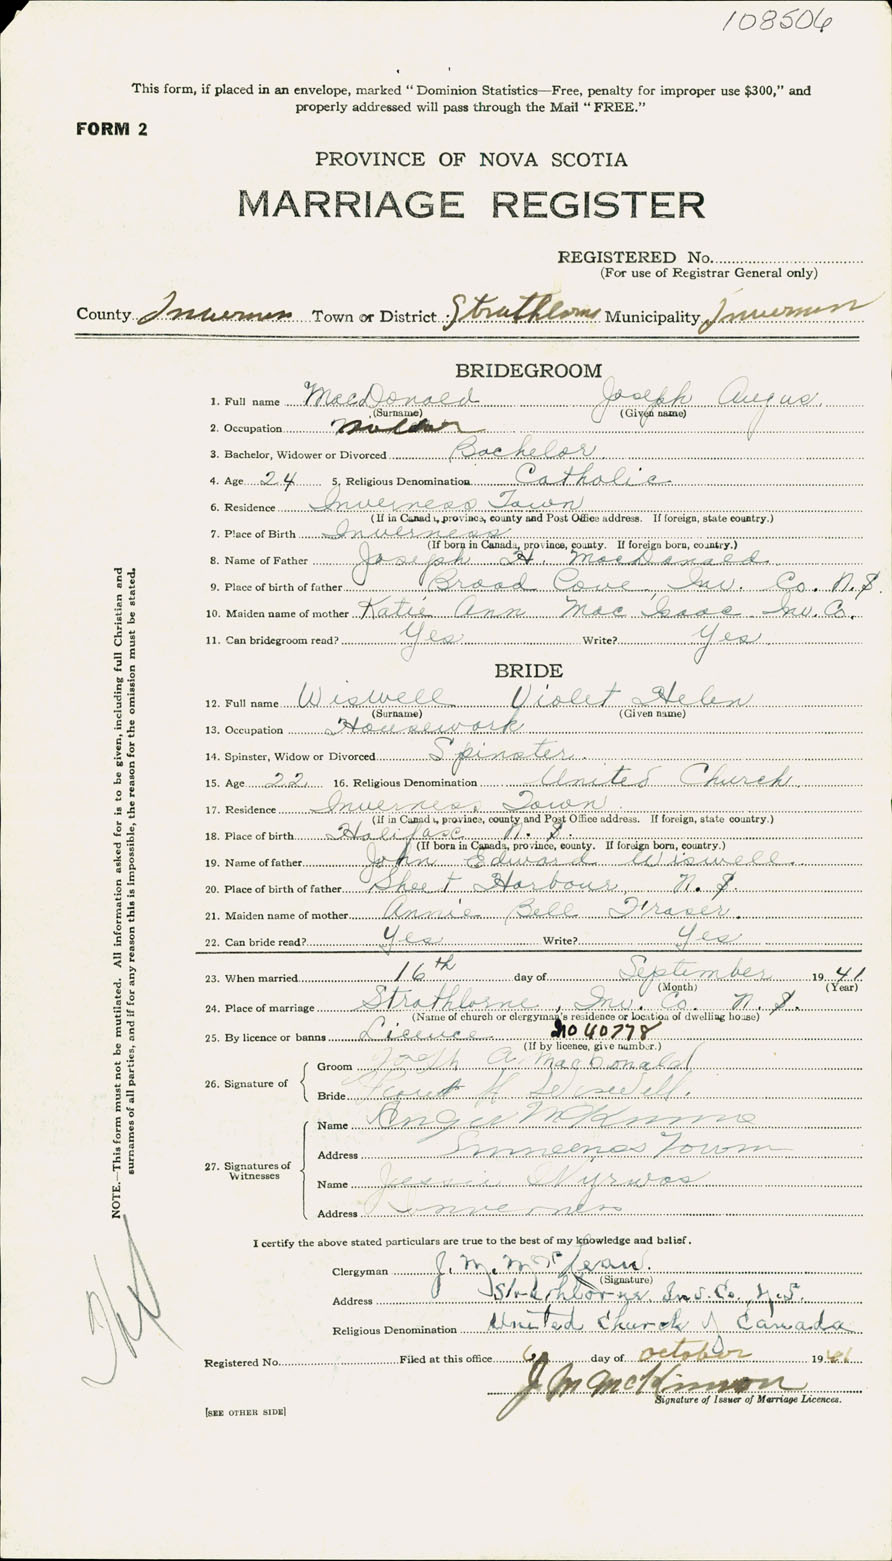 108506
This form, if placed in an envelope, marked "Dominion Statistics—Free, penalty for improper use $300," and
properly addressed will pass through the Mail "FREE."
FORM 2
PROVINCE OF NOVA SCOTIA
MARRIAGE REGISTER
REGISTERED No.
(For use of Registrar General only)
County Inverness Town or District Strathlorne Municipality Inverness
BRIDEGROOM
1. Full name MacDonald Joseph Angus
(Surname) (Given name)
2. Occupation
3. Bachelor, Widower or Divorced Bachelor
4. Age 24 5. Religious Denomination Catholic
6. Residence Inverness Town
(If in Canada, province, county and Post Office address. If foreign, state country.)
7. Place of Birth Inverness
(If born in Canada, province, county. If foreign born, country.)
8. Name of Father Joseph H. MacDonald
9. Place of birth of father Broad Cove, Inv. Co. N.S.
10. Maiden name of mother Katie Ann Mac Isaac Inv. Co.
11. Can bridegroom read? Yes Write? Yes
BRIDE
12. Full name Wiswell Violet Helen
(Surname) (Given name)
13. Occupation Housework
14. Spinster, Widow or Divorced Spinster
15. Age 22 16. Religious Denomination United Church
17. Residence Inverness Town
(If in Canada, province, county and Post Office address. If foreign, state country.)
18. Place of birth Halifax N.S.
(If born in Canada, province, county. If foreign born, country.)
19. Name of father John Edward Wiswell
20. Place of birth of father Sheet Harbour, N.S.
21. Maiden name of mother Annie Bell Fraser
22. Can bride read? Yes Write? Yes
23. When married 16th day of September 1941
(Month) (Year)
24. Place of marriage Strathlorne, Inv. Co. N.S.
(Name of church or clergyman's residence or location of dwelling house)
25. By licence or banns Licence No 40778
(If by licence, give number.)
26. Signature of
Groom Joseph A. MacDonald
Bride Violet H. Wiswell.
27. Signatures of Witnesses
Name Angus McKinnon
Address Inverness Town
Name Jessie
Address Inverness
I certify the above stated particulars are true to the best of my knowledge and belief.
Clergyman J. M. McLean.
(Signature)
Address Strathlorne, Inv. Co., N.S.
Religious Denomination United Church of Canada
Registered No. Filed at this office 6 day of October 1941
J M McKinnon
Signature of Issuer of Marriage Licences.
[SEE OTHER SIDE]
NOTE.—This form must not be mutilated. All information asked for is to be given, including full Christian and
surnames of all parties, and if for any reason this is impossible, the reason for the omission must be stated.